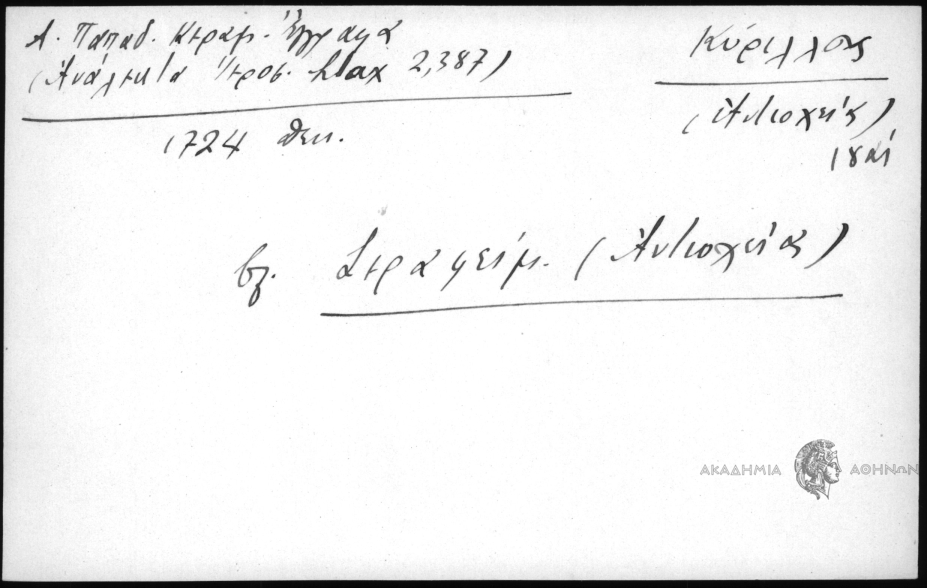 Α. Παπαδ. Κεραμ. Ἔγγραφα
(Ἀνάλεκτα Ἱεροσ. Σταχ 2,387)
Κύριλλος
(Ἀντιοχείας)
18 αἰ
1724 Δεκ.
βλ. Σεραφείμ. (Ἀντιοχείας)
ΑΚΑΔΗΜΙΑ ΑΘΗΝΩΝ